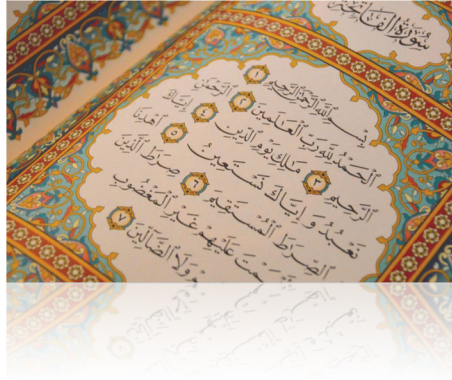 سُورَةُ الْفَاتِحَةِ
بِسْمِ ٱللَّهِ ٱلرَّحْمَٰنِ ٱلرَّحِيمِ ١
ٱلْحَمْدُ لِلَّهِ رَبِّ ٱلْعَٰلَمِينَ ٢ ٱلرَّحْمَٰنِ
ٱلرَّحِيمِ ٣ مَٰلِكِ يَوْمِ ٱلدِّينِ ٤ إِيَّاكَ
نَعْبُدُ وَإِيَّاكَ نَسْتَعِينُ ٥ ٱهْدِنَا
ٱلصِّرَٰطَ ٱلْمُسْتَقِيمَ ٦ صِرَٰطَ ٱلَّذِينَ
عَلَيْهِمْ غَيْرِ ٱلْمَغْضُوبِ
وَلَا ٱلضَّآلِّينَ ٧